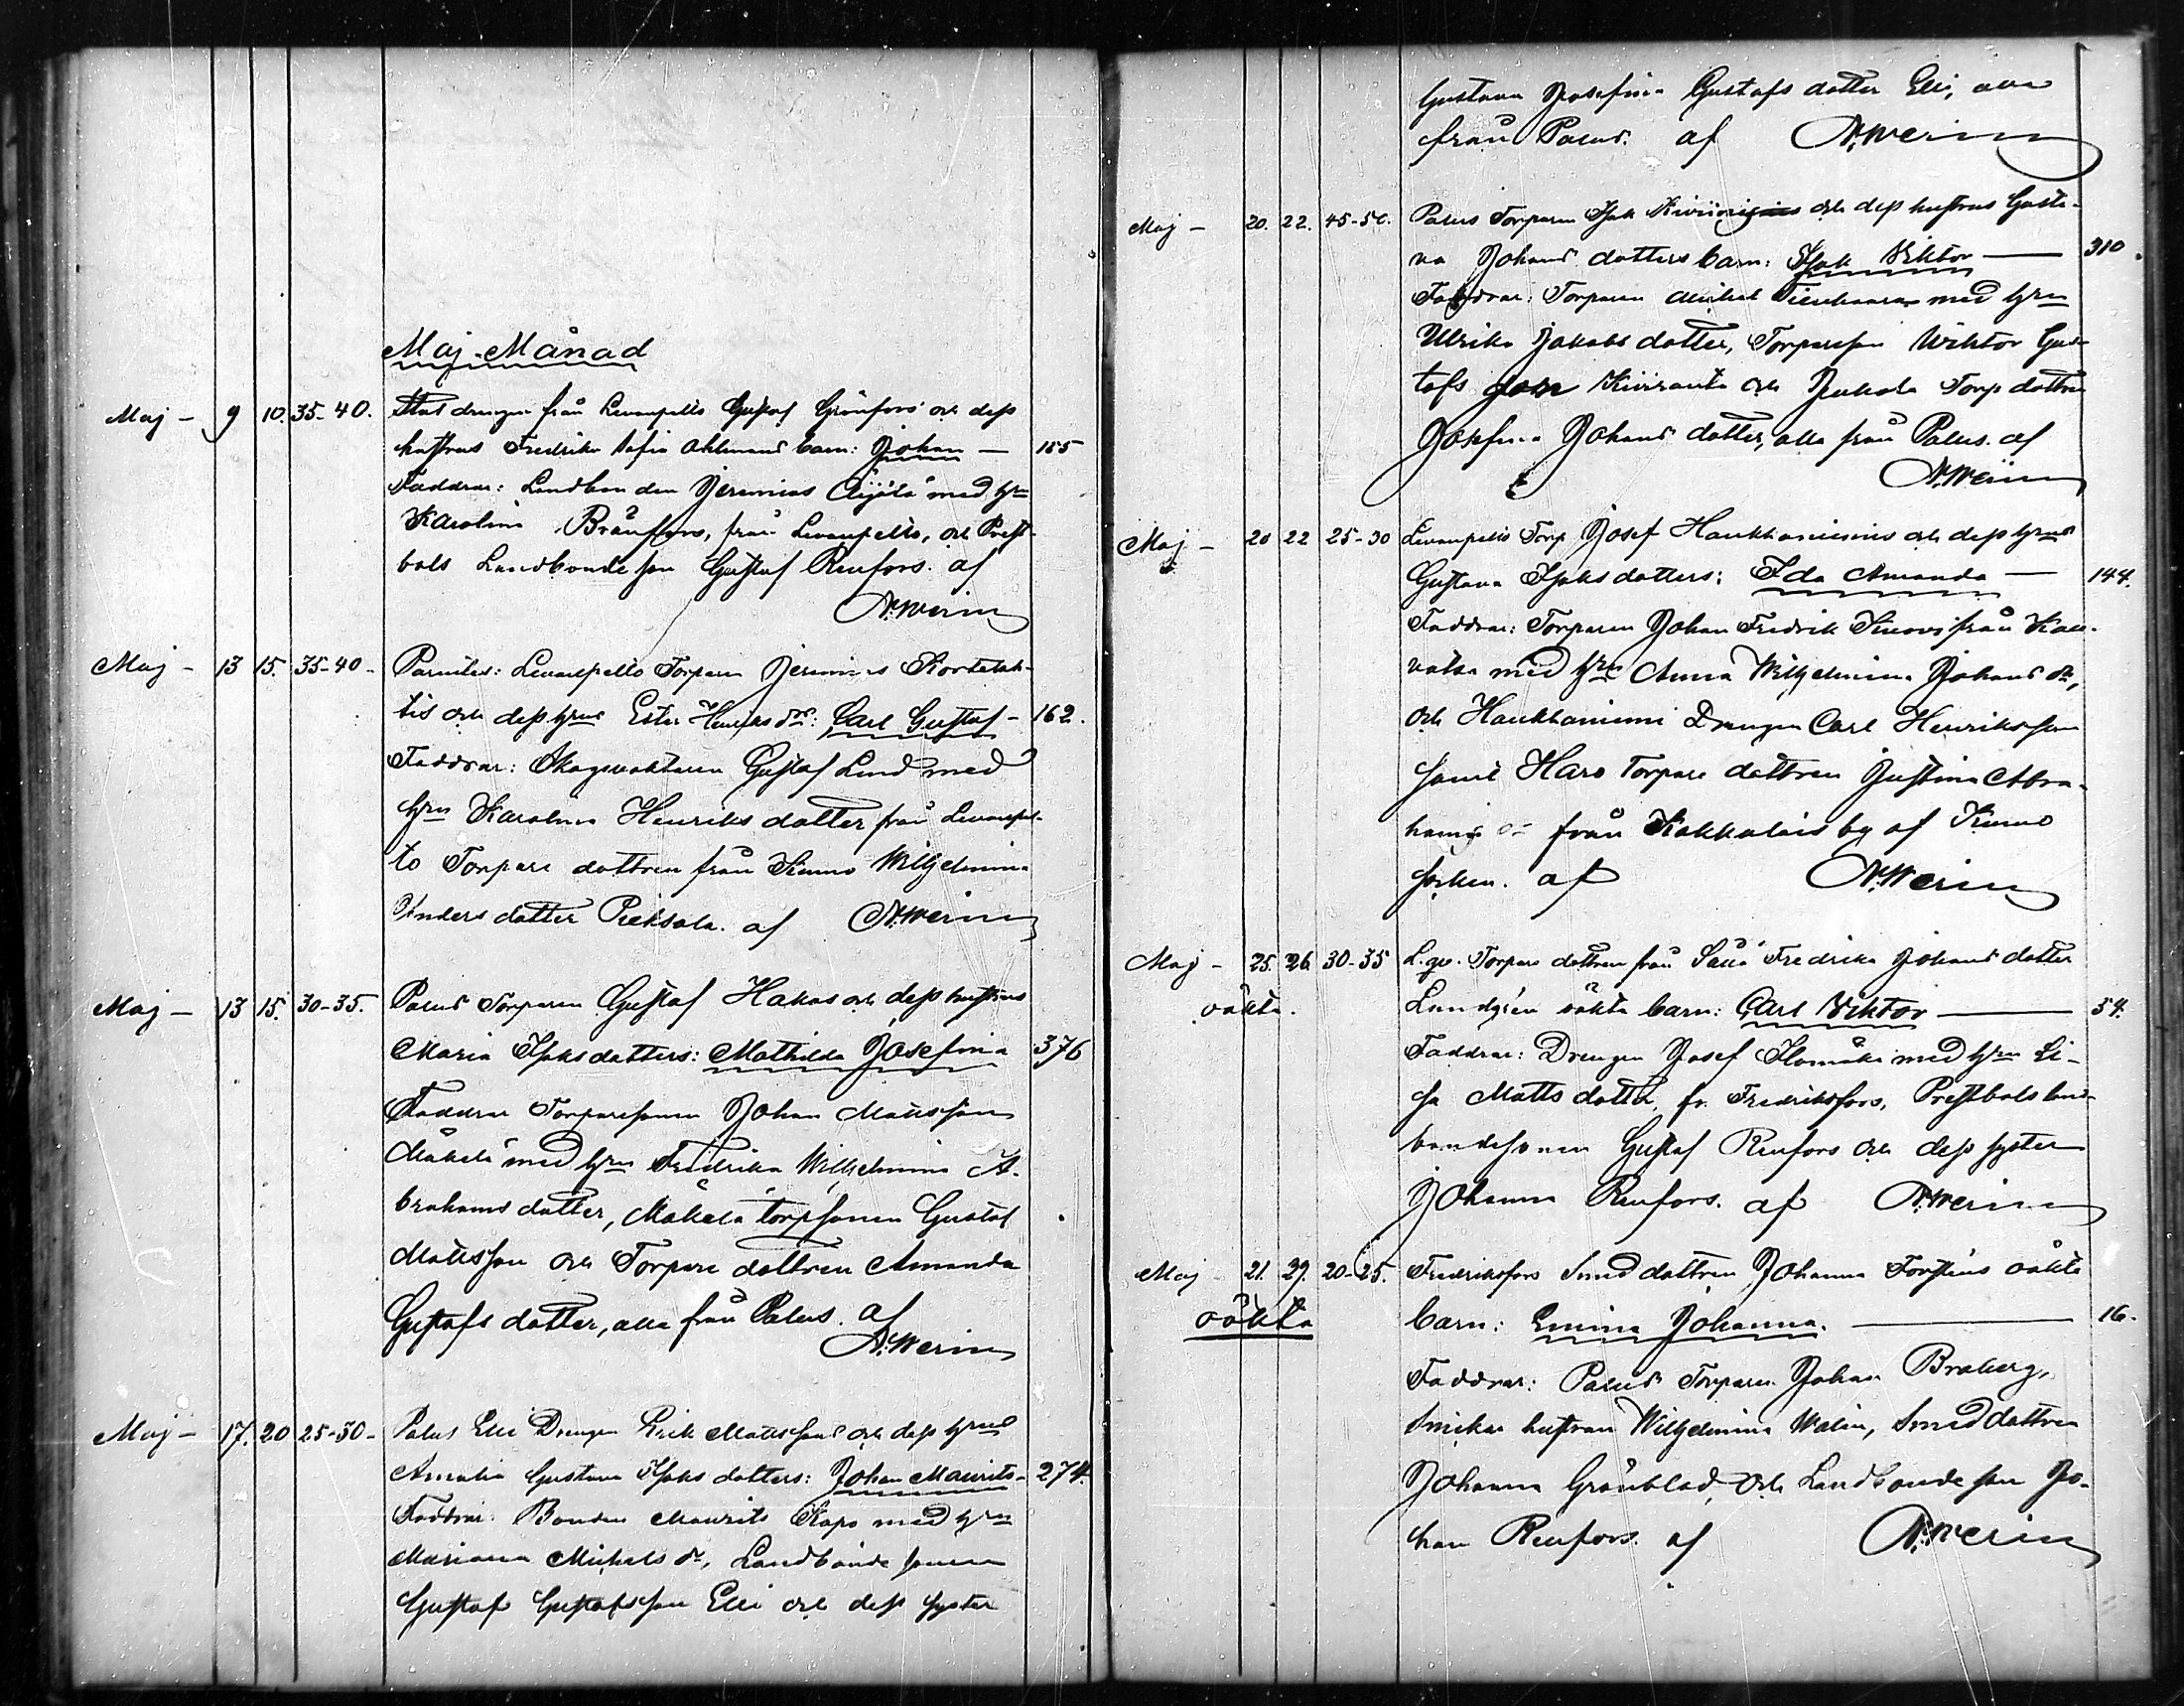 Maj Månad
Maj - 9 10. 35-40. Stat drengen från Levanpelto Gustaf Grönfors och dess
hustrus Fredrika Sofia Ahlmans barn: Johan — 155
Faddrar: Landbonden Jeremias Äijälä med hrn
Karolina Brånfors, från Levanpelto, och Prest-
bols Landbonde son Gustaf Renfors. af
A. Werin
Maj - 13 15. 35-40 - Levanpelto Torparen Jeremias Kortelah-
tis och dess hrus Ester Henriks drs: Carl Gustaf - 162.
Faddrar: Skogsvaktaren Gustaf Lind med
hrn Karolina Henriks dotter från Levanpel-
to Torpare dottren från Kiuno Wilhelmina
Anders dotter Pieksala. af A. Werin
Maj - 13 15. 30-35. Palus Torparen Gustaf Hakas och dess hustrus
Maria Isaks dotters: Mathilda Josefina 376
Faddrar Torparesonen Johan Mattsson
Mäkelä med hrn Fredrika Wilhelmina A-
brahams dotter, Mäkelä torpsonen Gustaf
Mattsson och Torpare dottren Amanda
Gustafs dotter, alla från Palus. af
A. Werin
Maj - 17. 20 25-30 - Palus Elli Drengen Erik Mattssons och dess hrus
Amalia Gustava Isaks dotters: Johan Maurits - 274.
Faddrar: Bonden Maurits Kapo med hrn
Mariana Michels dr, Landbonde sonen
Gustaf Gustafsson Elli och dess syster
Gustava Josefina Gustafs dotter Elli, alla
från Palus. af A. Werin
Maj - 20. 22. 45-50. Palus Torparen Isak och dess hustrus Gusta-
va Johans dotters barn: Isak Viktor — 310
Faddrar: Torparen Michel med hrn
Ulrika Jakobs dotter, Torpareson Wiktor Gus-
tafs son Kiviranta och Jukola Torp dottren
Josefina Johans dotter, alla från Palus. af
A. Werin
Maj - 20 22 25-30 Levanpelto Torp Josef Haukkaniemis och dess hrus
Gustava Isaks dotters: Ida Amanda — 144.
Faddrar: Torparen Johan Fredrik från Kau-
vatsa med hrn Anna Wilhelmina Johans dr,
och Haukkaniemi Drengen Carl Henriksson
samt Haro Torpare dottren Justina Abra-
hams dr från Kakkulais by af Kiuno
socken. af A. Werin
Maj - 25. 26. 30-35 L. qv. Torpare dottren från Fredrika Johans dotter
oäkta. Lundgrén oäkta barn: Carl Viktor — 54.
Faddrar: Drengen Josef Ilomäki med hrn Li-
sa Matts dotter, fr. Fredriksfors, Prestbols land-
bondesonen Gustaf Renfors och dess syster
Johanna Renfors. af A. Werin
Maj - 21. 29. 20-25. Fredriksfors Smed dottren Johanna Forsténs oäkta
oäkta barn: Emina Johanna. — 16.
Faddrar: Palus Torparen Johan Broberg,
Snickar hustrun Wilhelmina Walin, Smed dottren
Johanna Grönblad, och Landbonde son Jo-
han Renfors. af A. Werin